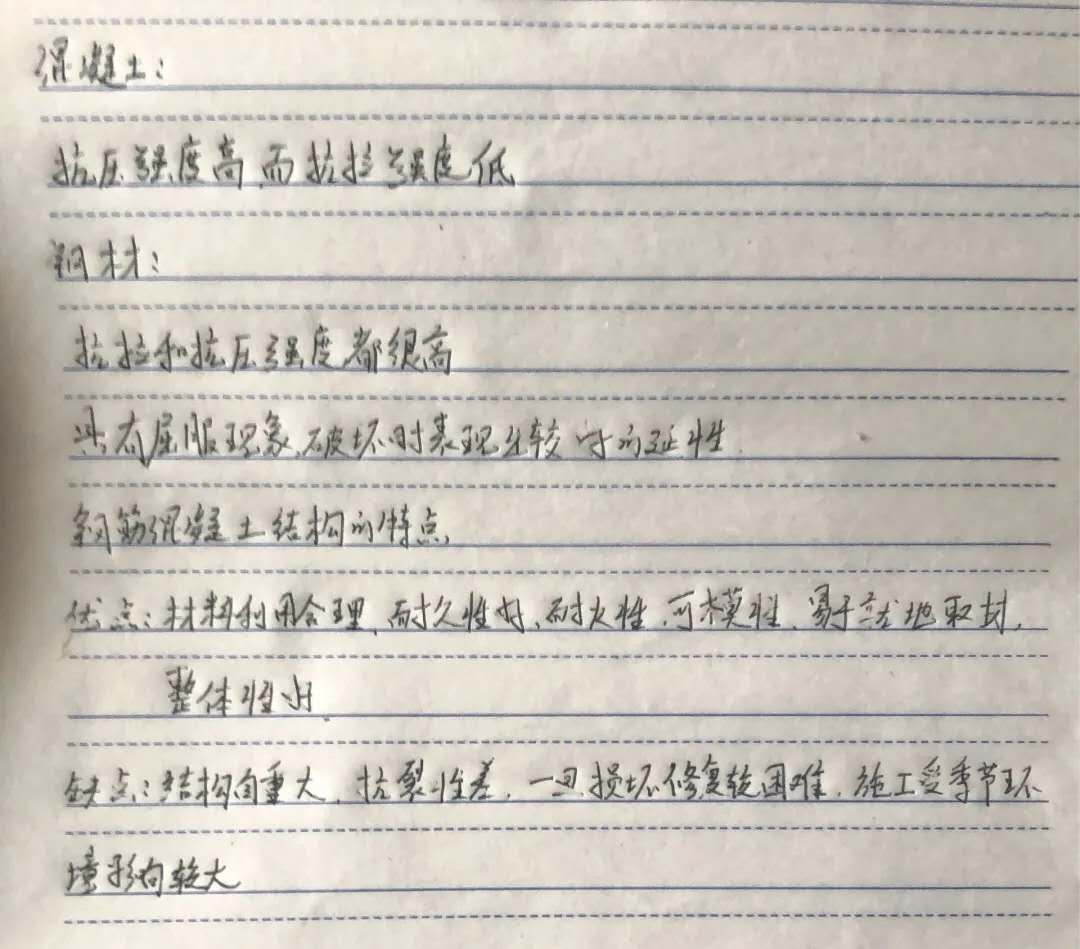 混凝土：
抗压强度高,而抗拉强度低
钢材：
抗拉和抗压强度都很高
具有屈服现象,破坏时表现出较好的延性.
钢筋混凝土结构的特点
优点：材料利用合理、耐久性好、耐火性、可模性、易于就地取材,
整体性好
缺点：结构自重大、抗裂性差、一旦损坏修复较困难、施工受季节环
境影响较大